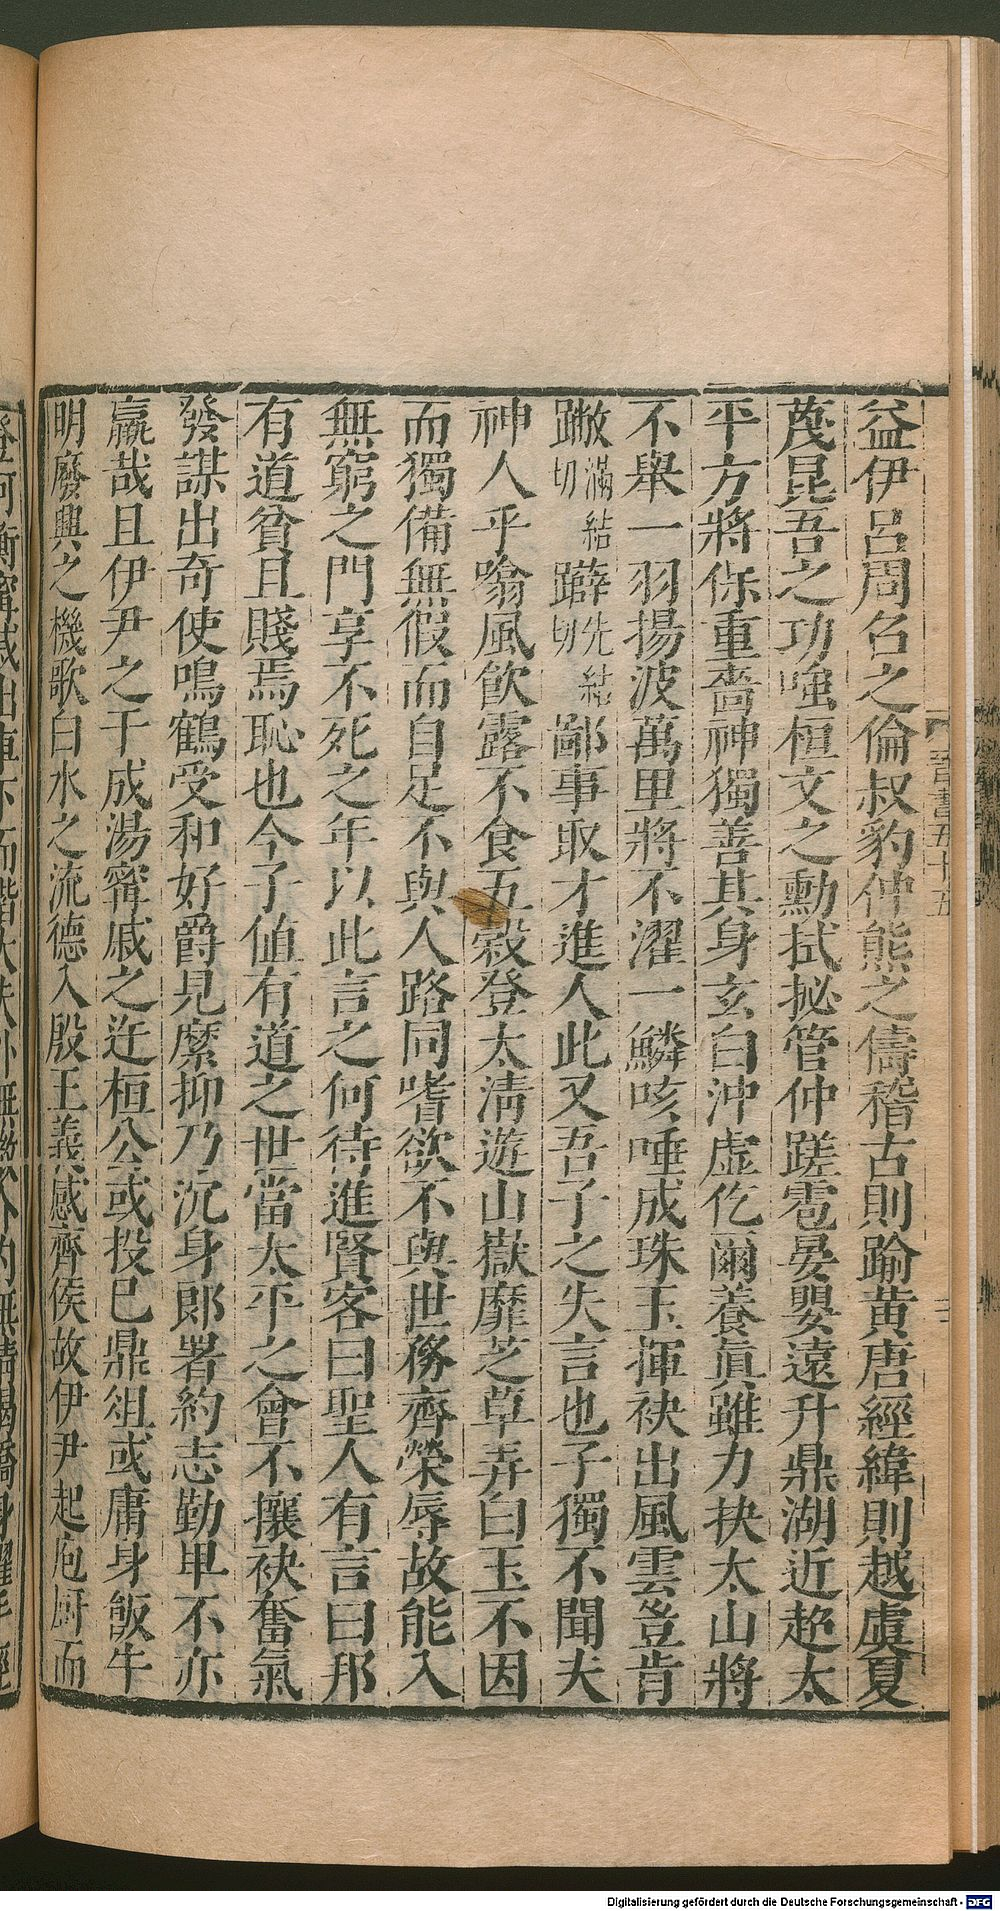 益伊呂周召之倫叔豹仲熊之儔稽古則踰黃唐經緯則越虞夏
蔑昆吾之功嗤桓文之勳拭抝管仲蹉雹晏嬰遠升鼎湖近超太
平方將保重嗇神獨善其身玄白沖虛仡爾養眞雖力抉太山將
不舉一羽揚波萬里將不濯一鱗咳唾成珠玉揮袂出風雲豈肯
蹩滿結切躠先結切鄙事取才進人此又吾子之失言也子獨不聞夫
神人乎噏風飲露不食五榖登太淸遊山嶽靡芝草弄白玉不因
而獨備無假而自足不與人路同嗜欲不與世務齊榮辱故能入
無窮之門享不死之年以此言之何待進賢客曰聖人有言曰邦
有道貧且賤焉恥也今子値有道之世當太平之會不攘袂奮氣
發謀出奇使鳴鶴受和好爵見縻抑乃沉身郎署約志勤卑不亦
羸哉且伊尹之干成湯甯戚之迕桓公或投巳鼎俎或庸身飯牛
明廢興之機歌白水之流德入殷王義感齊侯故伊尹起庖厨而
晉書五十五
Digitalisierung gefördert durch die Deutsche Forschungsgemeinschaft - DFG